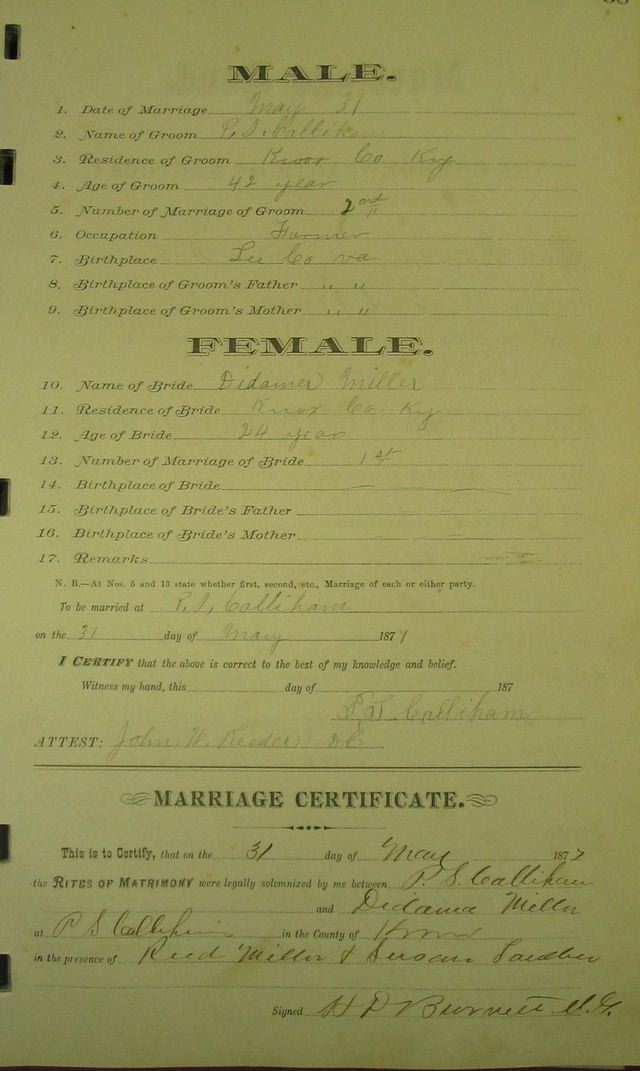 MALE.
1. Date of Marriage May 31
2. Name of Groom P. S. Calliham
3. Residence of Groom Knox Co Ky
4. Age of Groom 42 year
5. Number of Marriage of Groom 2nd
6. Occupation Farmer
7. Birthplace Lee Co va
8. Birthplace of Groom's Father " "
9. Birthplace of Groom's Mother " "
FEMALE.
10. Name of Bride Didamer Miller
11. Residence of Bride Knox Co Ky
12. Age of Bride 24 year
13. Number of Marriage of Bride 1st
14. Birthplace of Bride
15. Birthplace of Bride's Father
16. Birthplace of Bride's Mother
17. Remarks
N. B.—At Nos. 5 and 13 state whether first, second, etc., Marriage of each or either party.
To be married at P. S. Calliham
on the 31 day of May 1877
I CERTIFY that the above is correct to the best of my knowledge and belief.
Witness my hand, this day of 187
P. S. Calliham
ATTEST: John W. Reeder DC
MARRIAGE CERTIFICATE.
This is to Certify, that on the 31 day of May 1877
the RITES OF MATRIMONY were legally solemnized by me between P. S. Calliham
and Didama Miller
at P S Calliham in the County of Knox
in the presence of Reed Miller & Susan
Signed H P Burnett M. G.